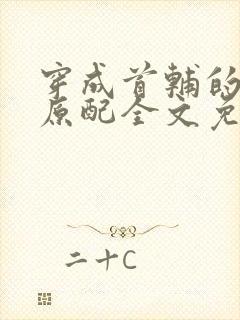 穿成首辅的
原配全文免
二十C